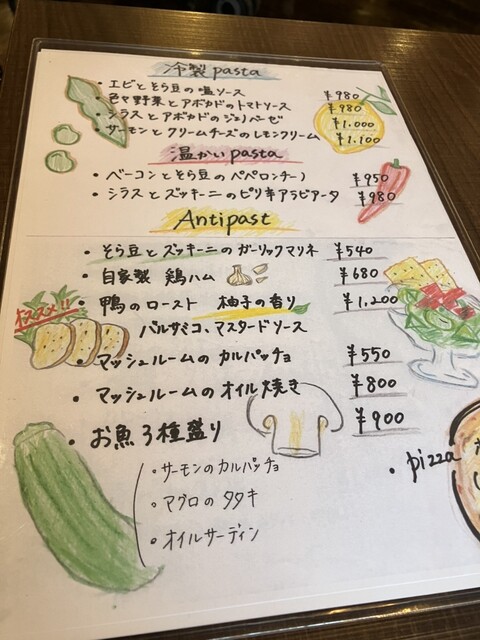 冷製 pasta
・エビとそら豆の塩ソース ¥980
・色々野菜とアボカドのトマトソース ¥980
・シラスとアボカドのジェノベーゼ ¥1.000
・サーモンとクリームチーズのレモンクリーム ¥1.100
温かい pasta
・ベーコンとそら豆のペペロンチーノ ¥950
・シラスとズッキーニのピリ辛アラビアータ ¥980
Antipast
・そら豆とズッキーニのガーリックマリネ ¥540
・自家製 鶏ハム ¥680
オススメ!!
・鴨のロースト 柚子の香り ¥1,200
バルサミコ、マスタードソース
・マッシュルームのカルパッチョ ¥550
・マッシュルームのオイル焼き ¥800
・お魚3種盛り ¥900
・サーモンのカルパッチョ
・マグロのタタキ
・オイルサーディン
・pizza